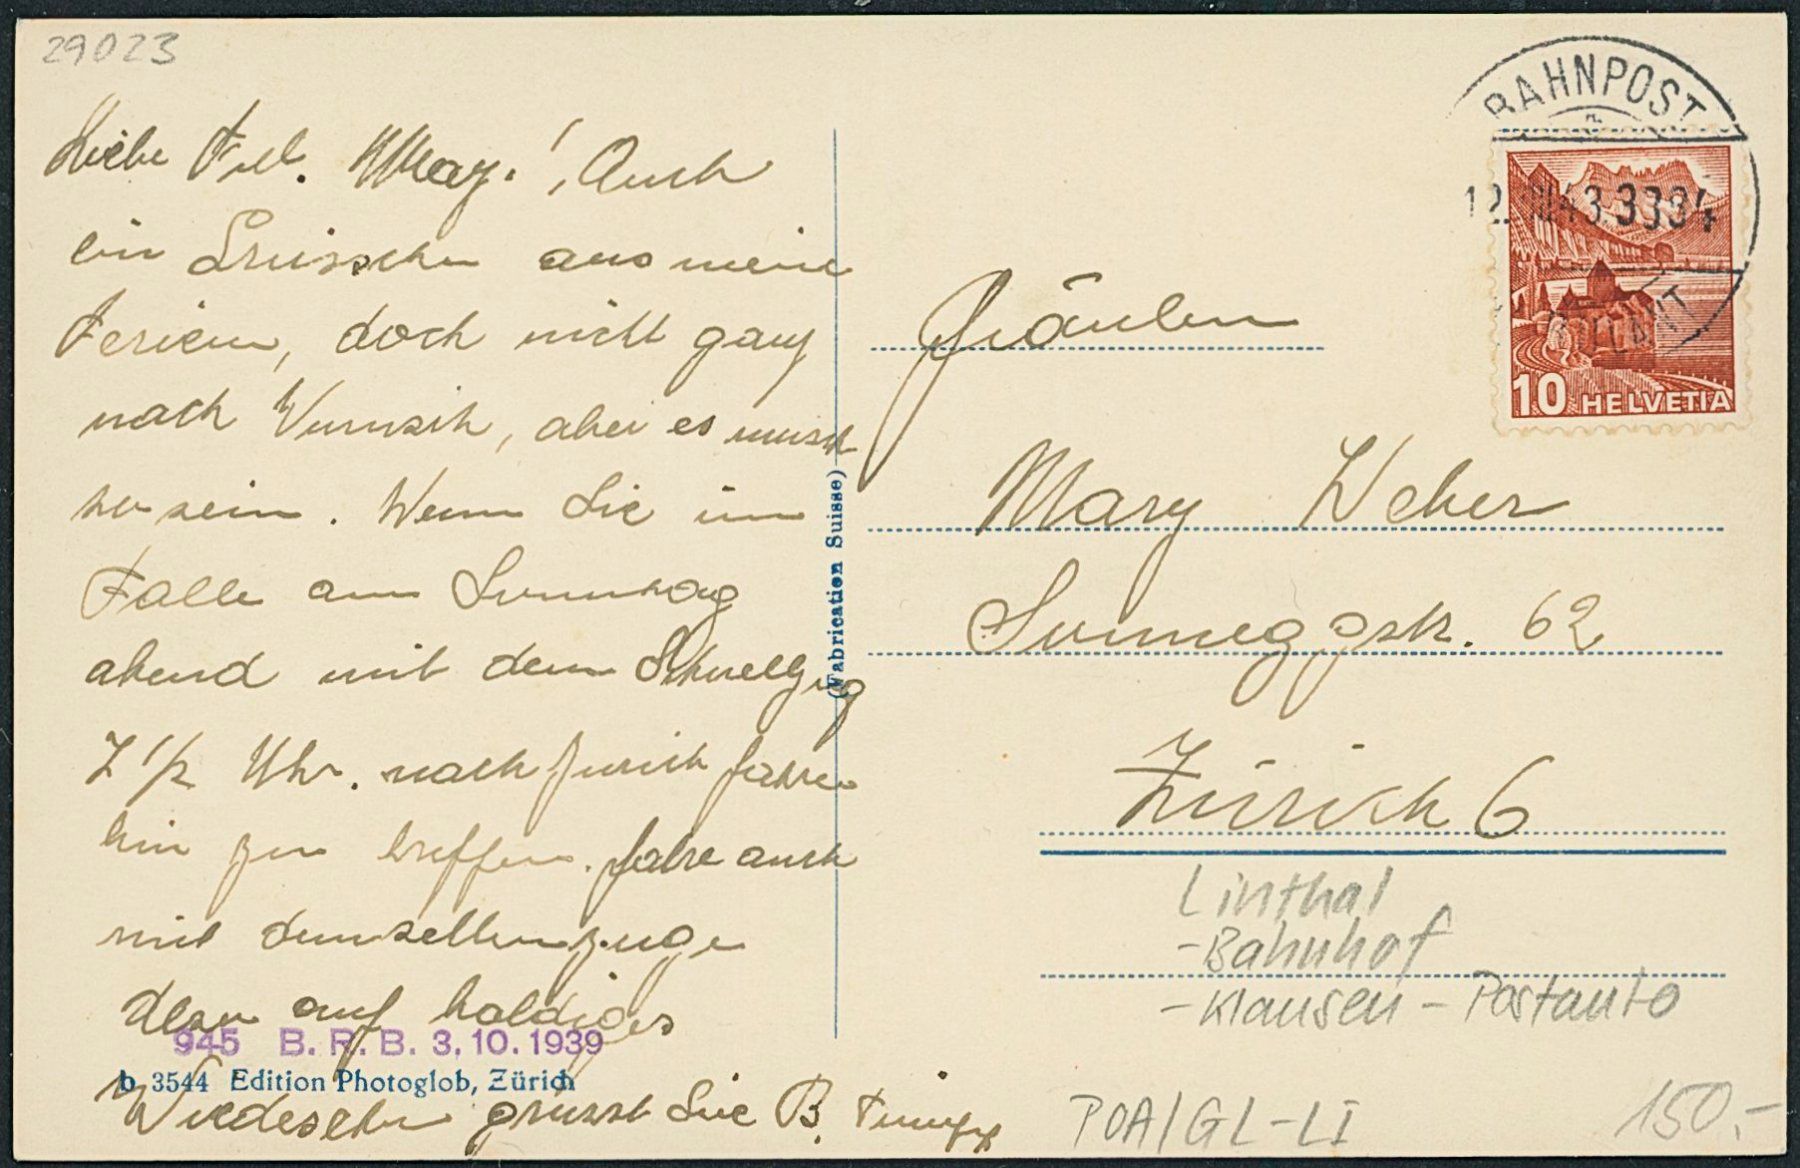 29023
Liebe Frl. Mary! Auch
ein Grüsschen aus meine
Ferien, doch nicht ganz
nach Wunsch, aber es musch
so sein. Wenn Sie im
Falle am Sonntag
abend mit dem Schnellzug
7 1/2 Uhr. nach Zürich fahren
bin zu treffen. fahre auch
mit demselben zuge
Also auf baldiges
Wiedersehn grüsst Sie B.
945 B. R. B. 3.10.1939
b 3544 Edition Photoglob, Zürich
(Fabrication Suisse)
BAHNPOST
12. 43. 3334
10 HELVETIA
Fräulein
Mary Weber
Sonneggstr. 62
Zürich 6
Linthal
-Bahnhof
-Klausen - Postauto
POA/GL-LI
150.-